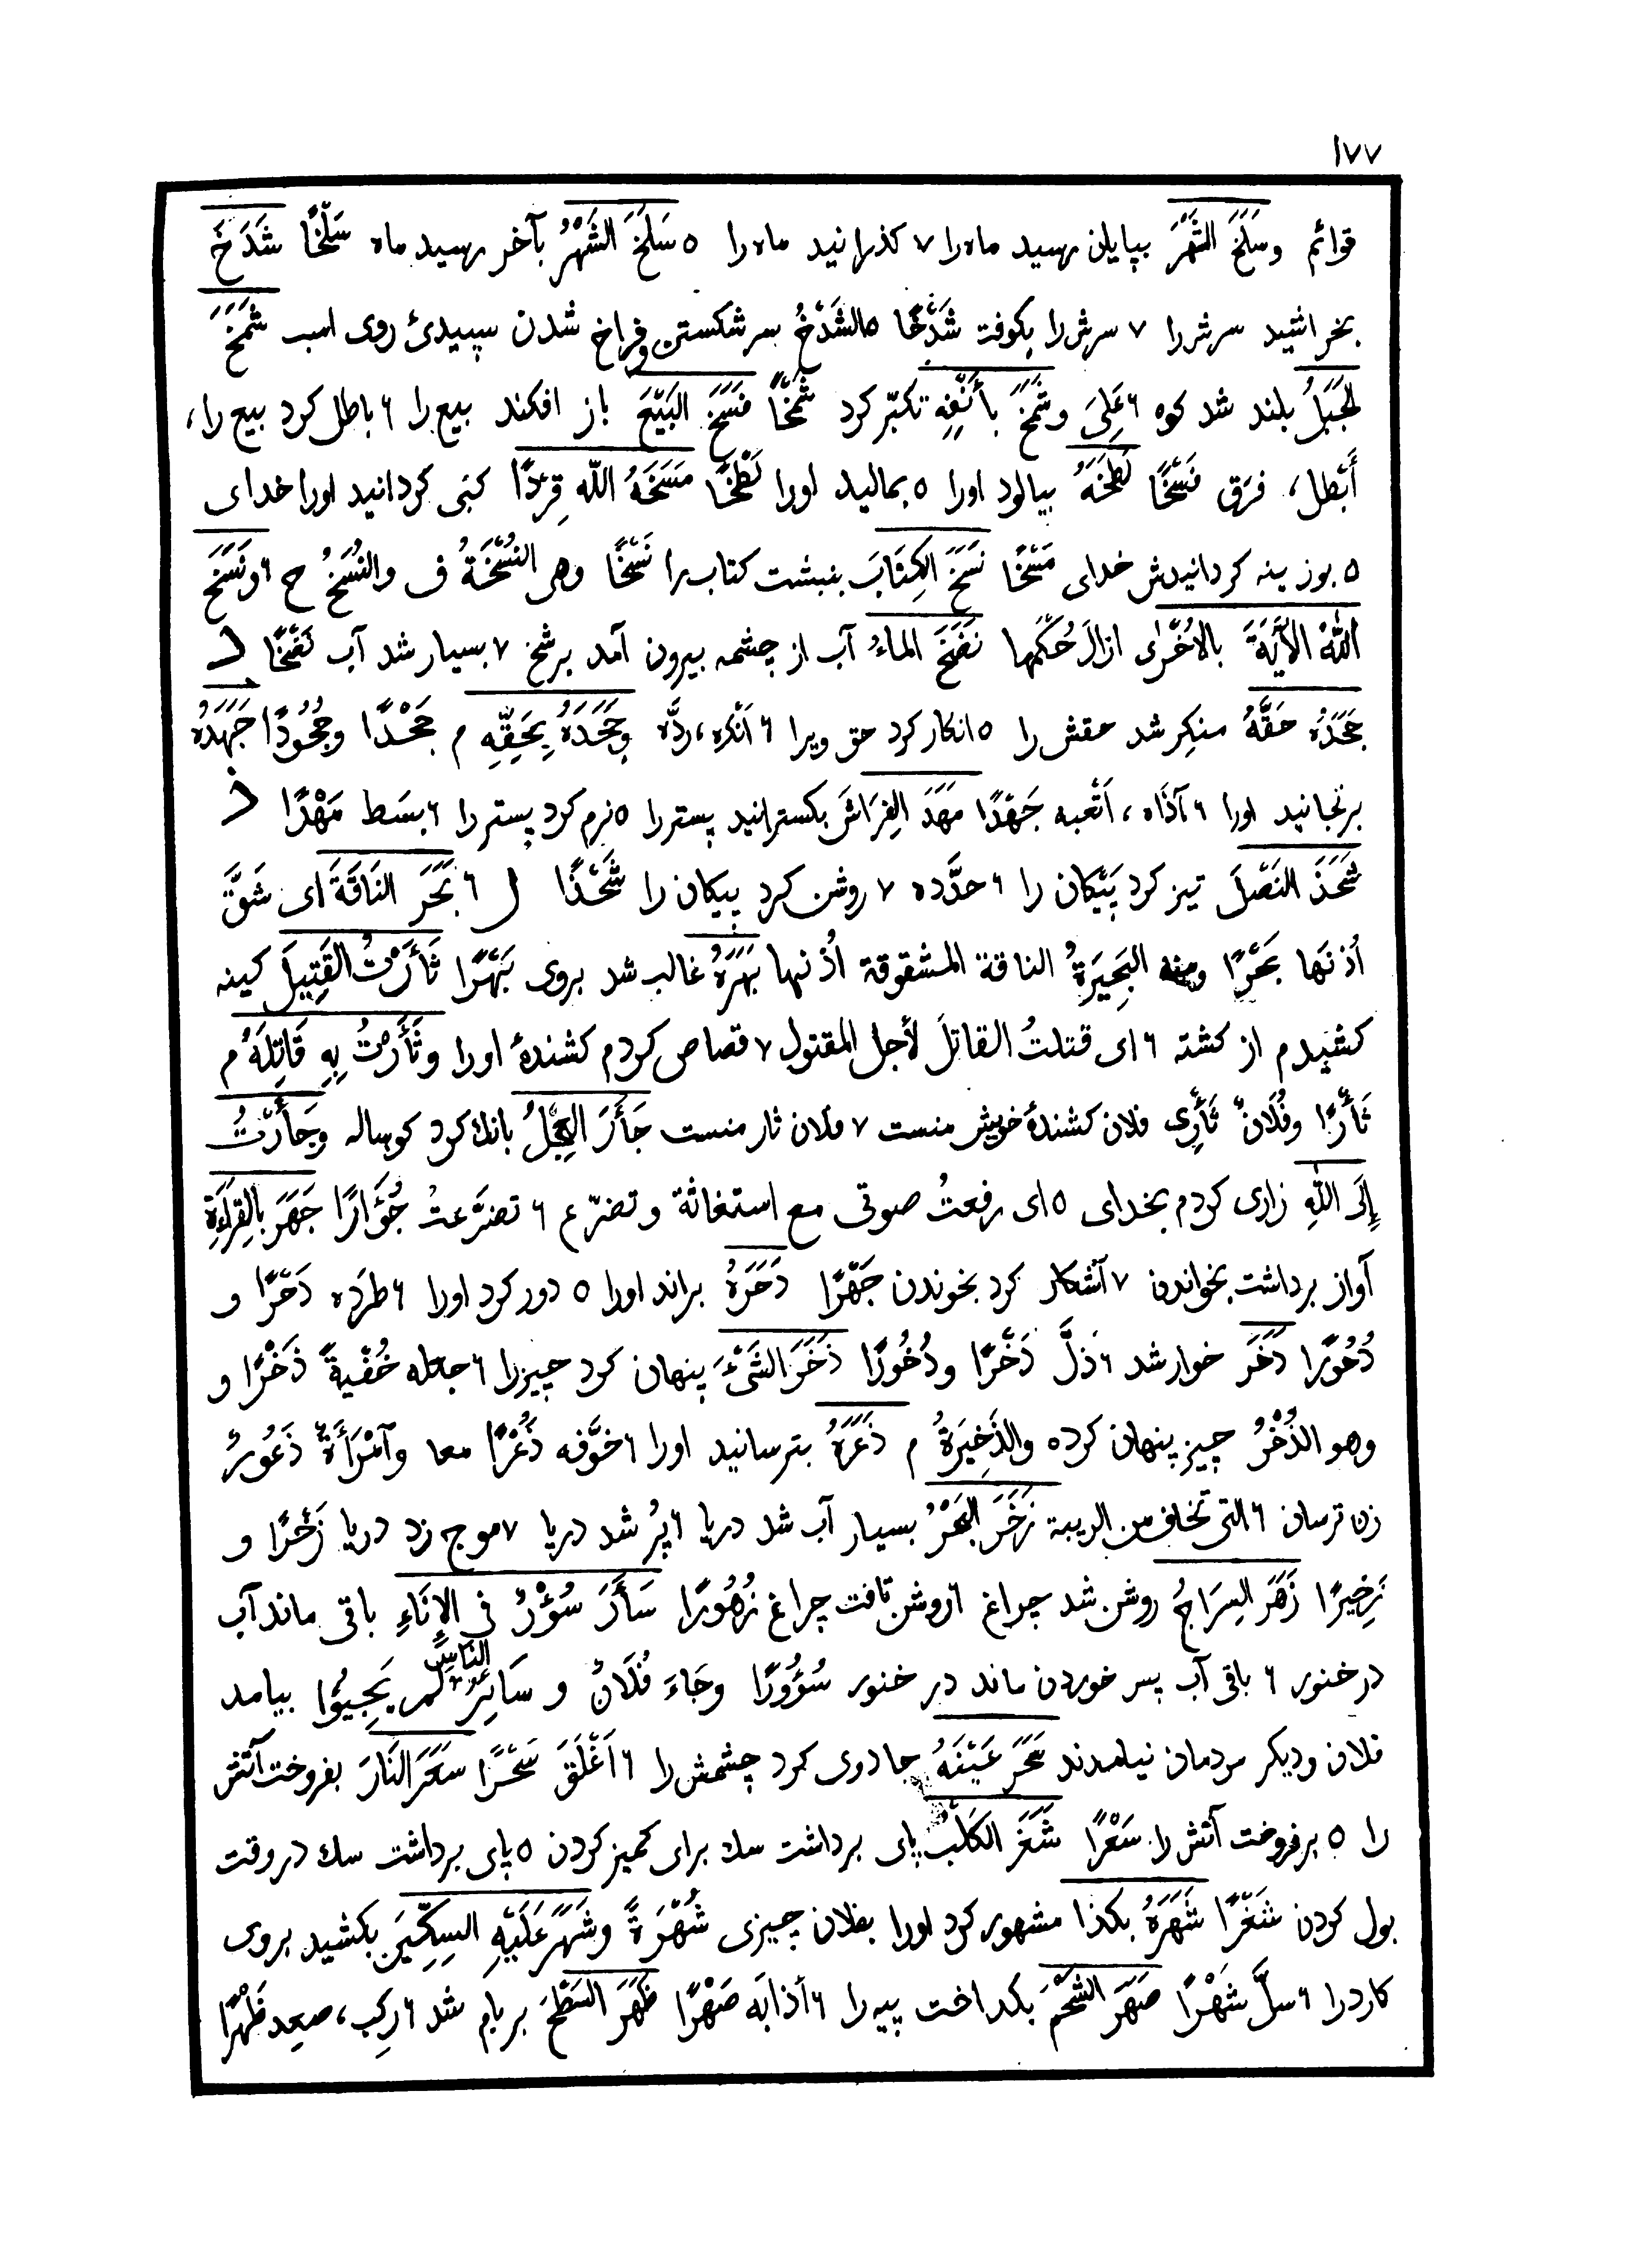 ١٧٧
قوائم وسَلَخَ الشَهْرَ بپایان رسید ماه را ٧ کذرانید ماه را ٥ سَلَخَ الشَهْرُ بآخر رسید ماه سَلْخًا شَدَخَ
بخراشید سرش را ٧ سرش را بکوفت شَدْخًا ٥ الشَدْخُ سر شکستن و فراخ شدن سپیدیٔ روی اسب شَمَخَ
الجَبَلُ بلند شد کوه ٦ عَلِیَ وشَمَخَ بأَنْفِهِ تکبّر کرد شَمْخًا فَسَخَ البَيْعَ باز افکند بیع را ٦ باطل کرد بیع را،
أَبْطل، فرَق فَسْخًا لَطَخَهُ بیالود اورا ٥ بمالید اورا لَطْخًا مَسَخَهُ اللّٰه قِرْدًا کبی کردانید اورا خدای
٥ بوزینه کردانیدش خدای مَسْخًا نَسَخَ الكِتَابَ بنبشت کتاب را نَسْخًا وهی النُسْخَةُ ف والنُسَخُ ح ٦ ونَسَخَ
اللّٰهُ الآيَةَ بالأُخْرٰى ازالَ حُكْمَها نَضَخَ الماءُ آب از چشمه بیرون آمد برشخ ٧ بسیار شد آب نَضْخًا د
جَحَدَهُ حَقَّهُ منکِر شد حقش را ٥ انکار کرد حق ویرا ٦ اَنْکره، ردَّه وجَحَدَهُ بِحَقِّهِ م جَحْدًا وجُحُودًا جَهَدَهُ
برنجانید اورا ٦ آذَاه، اَتْعبه جَهْدًا مَهَدَ الفِرَاشَ بکسترانید پستر را ٥ نرم کرد پستر را ٦ بسَط مَهْدًا ذ
شَحَذَ النَصْلَ تیز کرد پَیْکان را ٦ حدَّده ٧ روشن کرد پیکان را شَحْذًا ر ٦ بَحَرَ النَاقَةَ ای شَقَّ
اُذنَها بَحْرًا ومنه البَحِيرَةُ الناقة المشقوقة اُذنها بَهَرَهُ غالب شد بروی بَهْرًا ثَأَرْتُ القَتِيلَ کینه
کشیدم از کشته ٦ ای قتلتُ القاتلَ لأجل المقتول ٧ قصاص کردم کشندهٔ اورا وثَأَرْتُ بِهِ قَاتِلَهُ م
ثَأْرًا وفُلَانٌ ثَأْرِی فلان کشندهٔ خویش منست ٧ فلان ثار منست جَأَرَ العِجْلُ بانك کرد کوساله وجَأَرْتُ
إِلَى اللّٰهِ زاری کردم بخدای ٥ ای رفعتُ صوتی مع استغاثة وتضرّع ٦ تضرَّعتُ جُؤَارًا جَهَرَ بالقِرَاءَةِ
آواز برداشت بخواندن ٧ آشکار کرد بخوندن جَهْرًا دَحَرَهُ براند اورا ٥ دور کرد اورا ٦ طرَده دَحْرًا و
دُحُورًا دَخَرَ خوار شد ٦ ذلَّ دَخْرًا ودُخُورًا ذَخَرَ الشَىْءَ پنهان کرد چیزرا ٦ جعله خُفْيةً ذَخْرًا و
وهو الذُخْرُ چیز پنهان کرده والذَخِيرَةُ م ذَعَرَهُ بترسانید اورا ٦ خوَّفه ذُعْرًا معا وآمْرَأَةٌ ذَعُورٌ
زن ترسان ٦ التی تخاف من الریبة زَخَرَ البَحْرُ بسیار آب شد دریا ٦ پُر شد دریا ٧ موج زد دریا زَخْرًا و
زَخِيرًا زَهَرَ السِرَاجُ روشن شد چراغ ٦ روشن تافت چراغ زُهُورًا سَأَرَ سُؤْرٌ فی الإِنَاءِ باقی ماند آب
در خنور ٦ باقی آب پس خوردن ماند در خنور سُؤُورًا وجَاءَ فُلَانٌ و سَائِرُ النَاسِ لَمْ يَجِيئُوا بیامد
فلان ودیکر مردمان نیامدند سَحَرَ عَيْنَهُ جادوی کرد چشمش را ٦ اَغْلَقَ سَحْرًا سَعَرَ النَارَ بفروخت آتش
را ٥ برفروخت آتش را سَعْرًا شَغَرَ الكَلْبُ پای برداشت سك برای کمیز کردن ٥ پای برداشت سك در وقت
بول کردن شَغْرًا شَهَرَهُ بکذا مشهور کرد اورا بفلان چیزی شُهْرَةً وشَهَرَ عَلَيْهِ السِكِّينَ بکشید بروی
کارد را ٦ سلَّ شَهْرًا صَهَرَ الشَحْمَ بکداخت پیه را ٦ أذابَه صَهْرًا ظَهَرَ السَطْحَ بر بام شد ٦ رکِب، صعِد ظَهْرًا